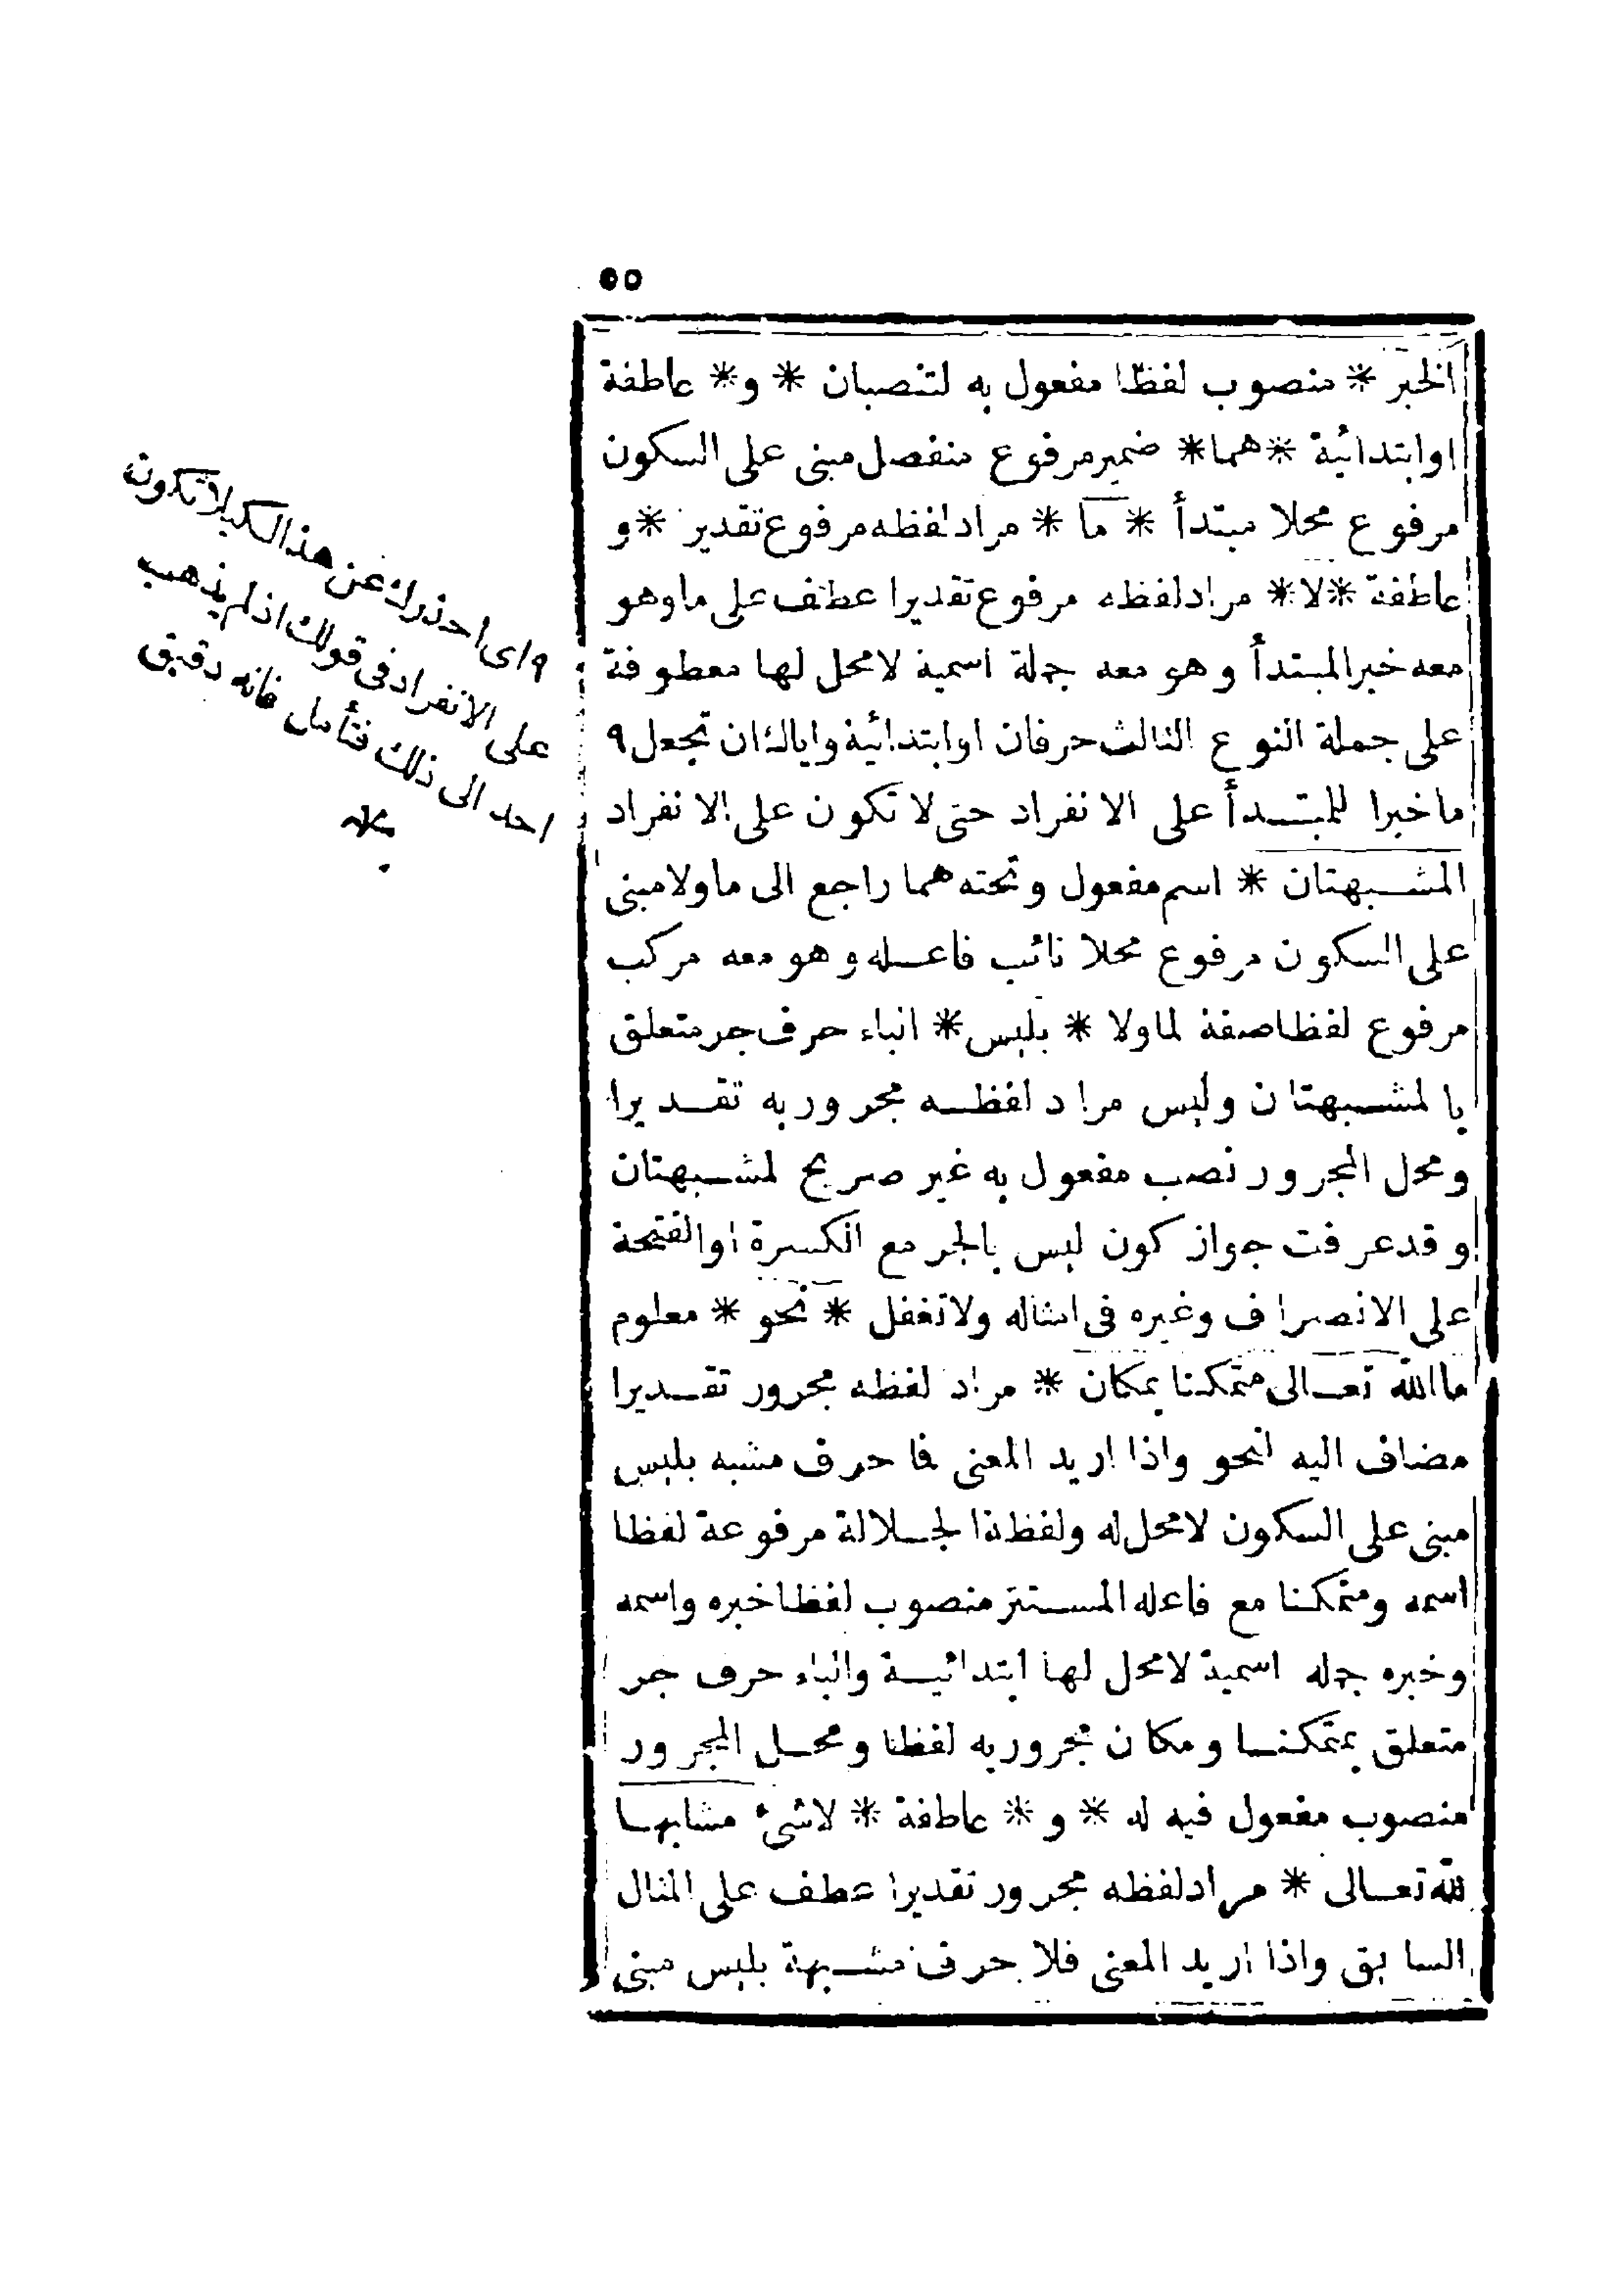 ٥٥
الخبر * منصوب لفظا مفعول به لتنصبان * و* عاطفة
اوابتدائية *هما* ضمير مرفوع منفصل مبنى على السكون
مرفوع محلا مبتدأ * ما * مراد لفظه مرفوع تقدير *و
عاطفة *لا* مراد لفظه مرفوع تقديرا عطف على ما وهو
معه خبر المبتدأ وهو معه جملة اسمية لا محل لها معطوفة
على جملة النوع الثالث حرفان اوابتدائية واياك ان تجعل ٩
ما خبرا للمبتدأ على الانفراد حتى لا تكون على الانفراد
المشبهتان * اسم مفعول وتحته هما راجع الى ما ولا مبنى
على السكون مرفوع محلا نائب فاعله وهو معه مركب
مرفوع لفظا صفة لما ولا * بليس* الباء حرف جر متعلق
بالمشبهتان وليس مراد لفظه مجرور به تقديرا
ومحل المجرور نصب مفعول به غير صريح لمشبهتان
وقد عرفت جواز كون ليس بالجر مع الكسرة او الفتحة
على الانصراف وغيره فى امثاله ولا تغفل * نحو * معلوم
ما الله تعالى متمكنا بمكان * مراد لفظه مجرور تقديرا
مضاف اليه لنحو واذا اريد المعنى فما حرف مشبه بليس
مبنى على السكون لا محل له ولفظة الجلالة مرفوعة لفظا
اسمه ومتمكنا مع فاعله المستتر منصوب لفظا خبره واسمه
وخبره جمله اسمية لا محل لها ابتدائية والباء حرف جر
متعلق بمتمكنا ومكان مجرور به لفظا ومحل المجرور
منصوب مفعول فيه له * و * عاطفة * لا شئ مشابها
لله تعالى * مراد لفظه مجرور تقديرا عطف على المثال
السابق واذا اريد المعنى فلا حرف مشبهة بليس مبنى
٩ اى احذرك عن هذا لكيلا تكون
على الانفراد فى قولك اذ لم يذهب
احد الى ذلك فتأمل فانه دقيق